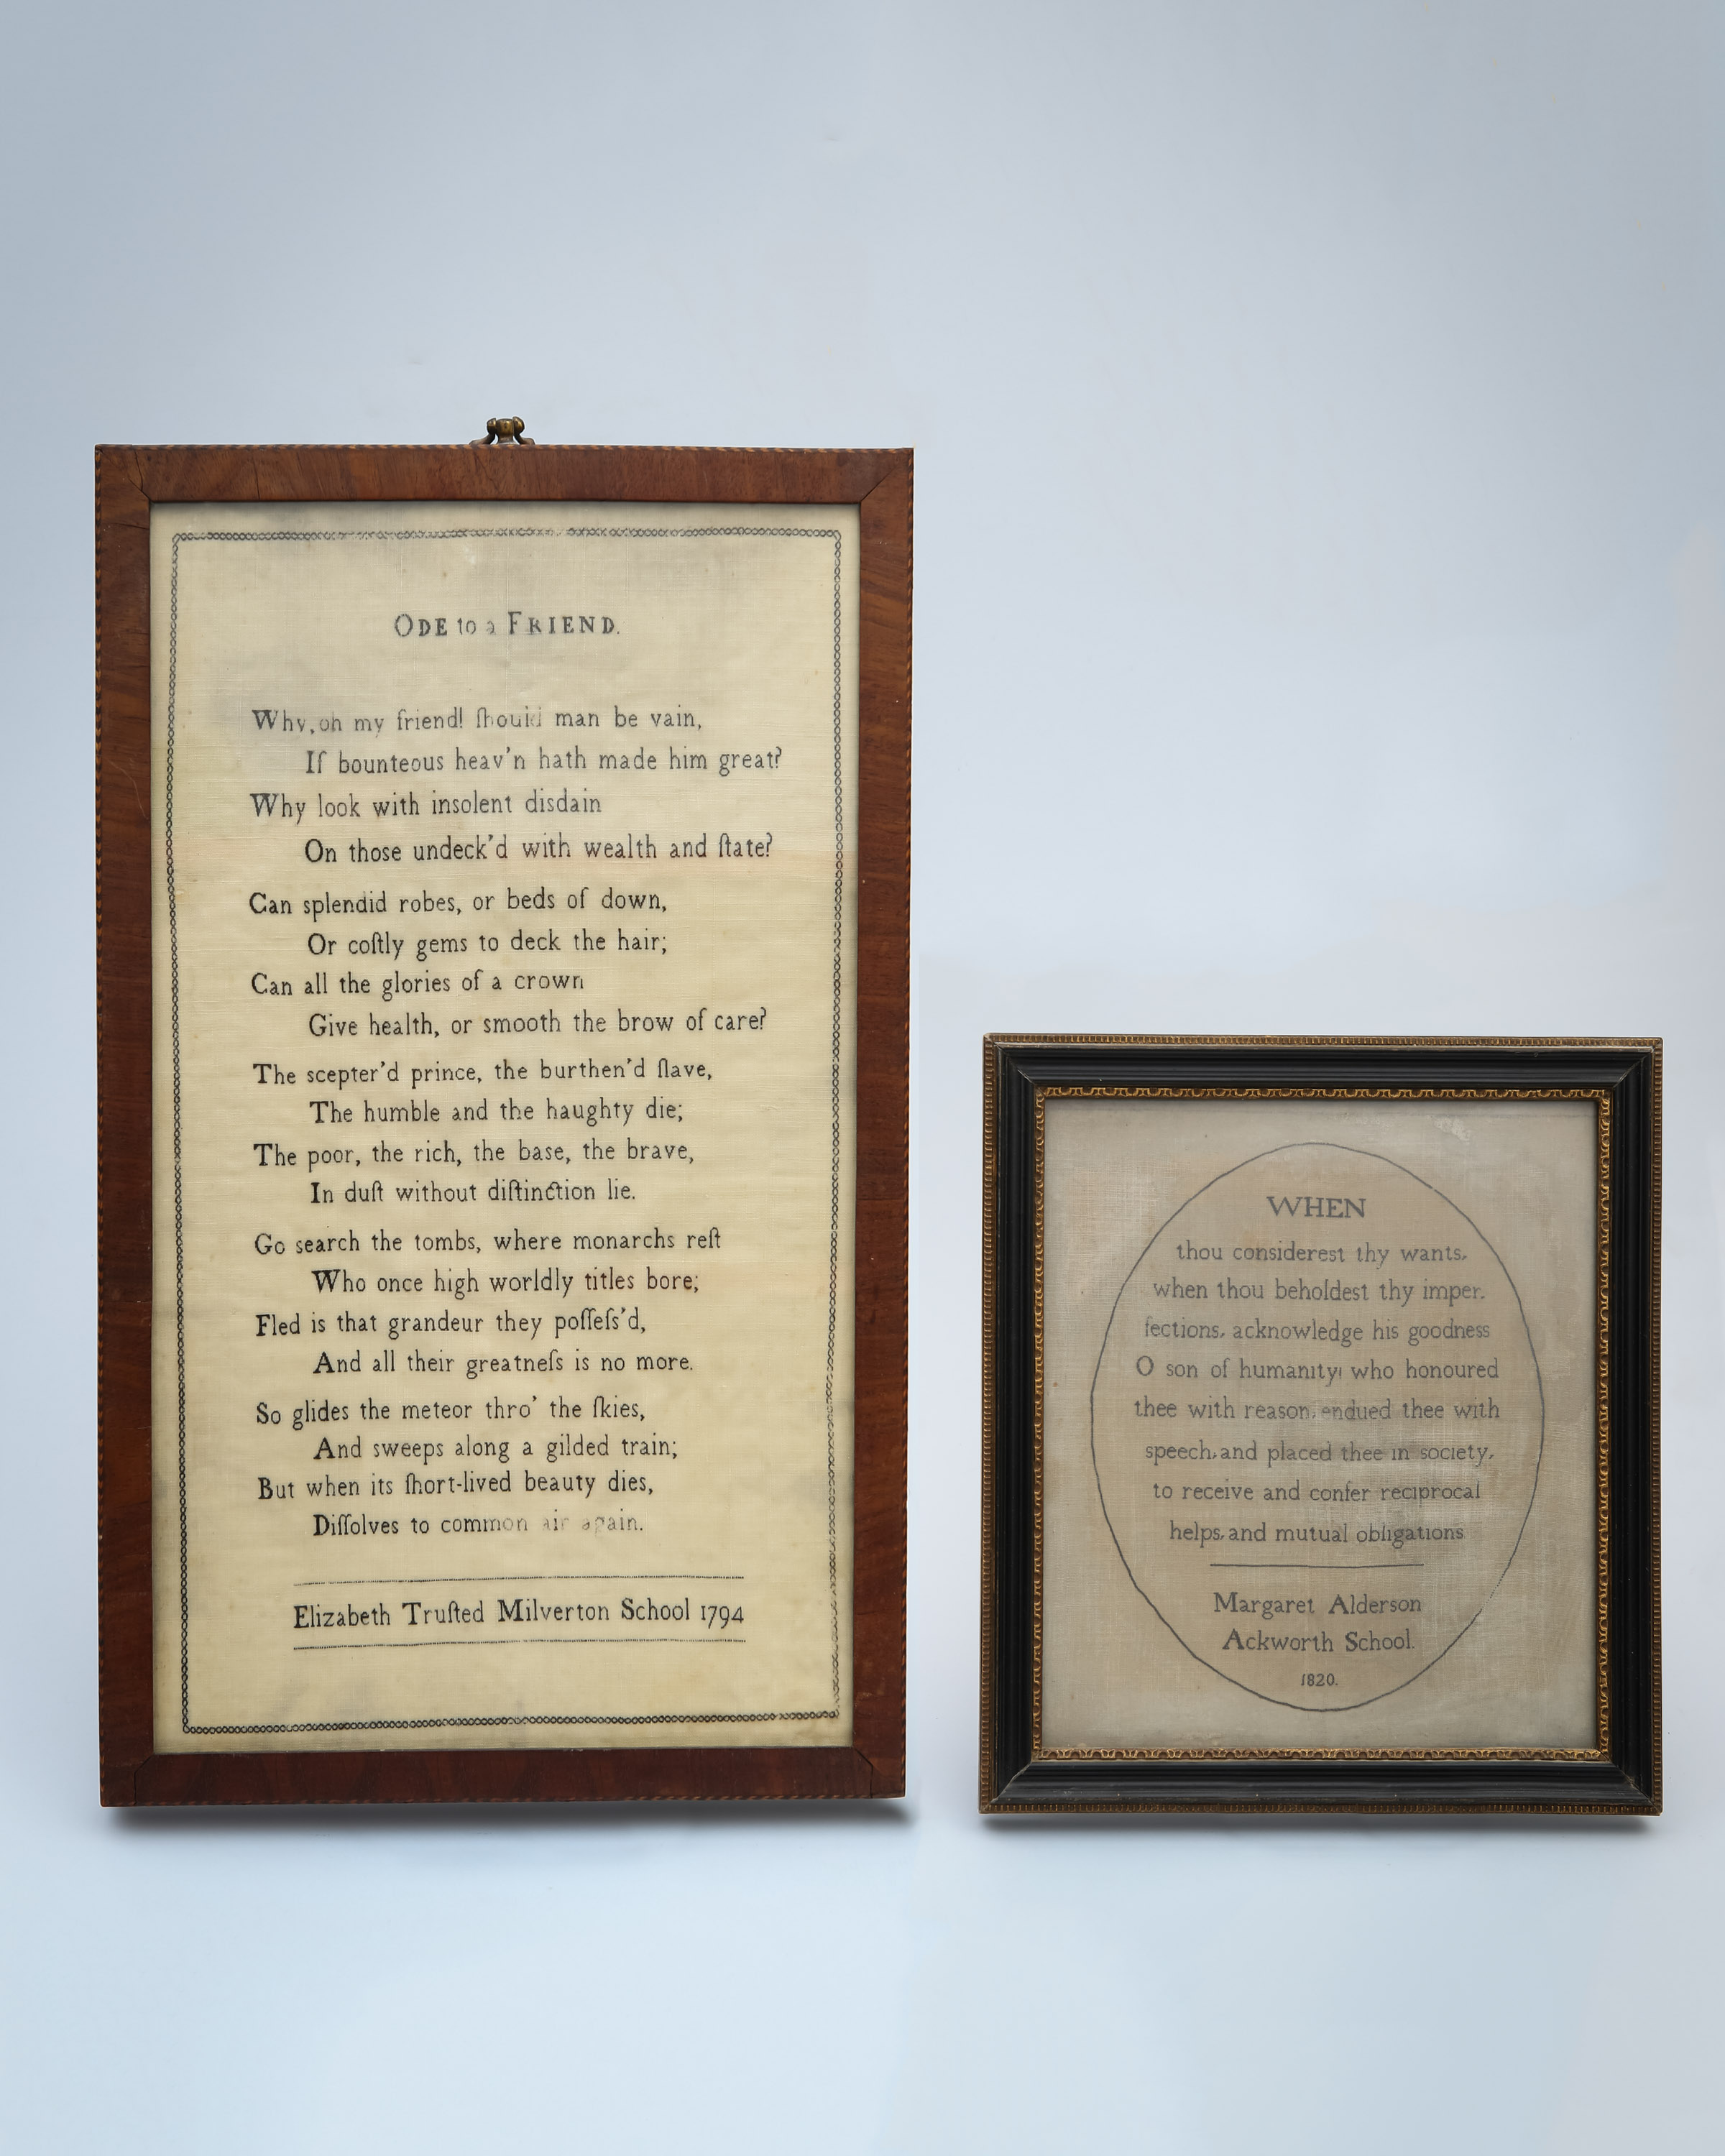 ODE to a FRIEND.
Why, oh my friend! ſhould man be vain,
If bounteous heav'n hath made him great?
Why look with insolent disdain
On those undeck'd with wealth and ſtate?
Can splendid robes, or beds of down,
Or coſtly gems to deck the hair;
Can all the glories of a crown
Give health, or smooth the brow of care?
The scepter'd prince, the burthen'd ſlave,
The humble and the haughty die;
The poor, the rich, the base, the brave,
In duſt without diſtinction lie.
Go search the tombs, where monarchs reſt
Who once high worldly titles bore;
Fled is that grandeur they poſſeſs'd,
And all their greatneſs is no more.
So glides the meteor thro' the ſkies,
And sweeps along a gilded train;
But when its ſhort-lived beauty dies,
Diſſolves to common air again.
Elizabeth Truſted Milverton School 1794
WHEN
thou considerest thy wants,
when thou beholdest thy imper.
fections, acknowledge his goodness
O son of humanity! who honoured
thee with reason, endued thee with
speech, and placed thee in society,
to receive and confer reciprocal
helps, and mutual obligations
Margaret Alderson
Ackworth School.
1820.